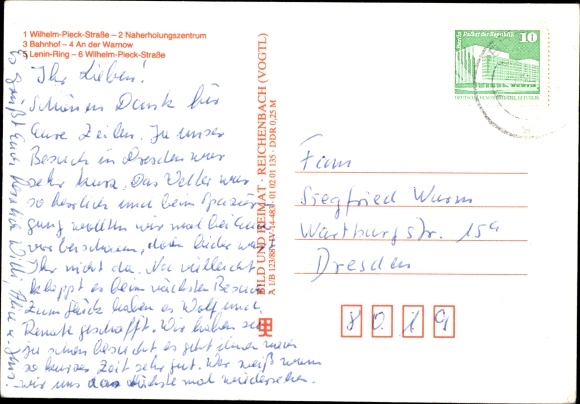 1 Wilhelm-Pieck-Straße – 2 Naherholungszentrum
3 Bahnhof – 4 An der Warnow
5 Lenin-Ring – 6 Wilhelm-Pieck-Straße
Ihr Lieben!
Schönen Dank für
Eure Zeilen. Zu unser
Besuch in Dresden war
sehr kurz. Das Wetter war
so herrlich und beim Spazier
gang wollten wir mal bei Euch
vorbeischauen, doch leider wart
Ihr nicht da. Na vielleicht
klappt es beim nächsten Besuch
Zum Glück haben es Wolf und
Renate geschafft. Wir haben sie
zu schon besucht es geht ihnen
so kurzer Zeit sehr gut. Wer weiß wann
wir uns das nächste mal wiedersehen.
Es grüßt Euch herzlich Willi, u.
BILD UND HEIMAT · REICHENBACH (VOGTL)
A 1/B 123/88 IV-14-483 01 02 01 135 · DDR 0,25 M
Berlin Palast der Republik
10
DEUTSCHE DEMOKRATISCHE REPUBLIK
Fam
Siegfried Wurm
Wartburgstr. 15a
Dresden
8019